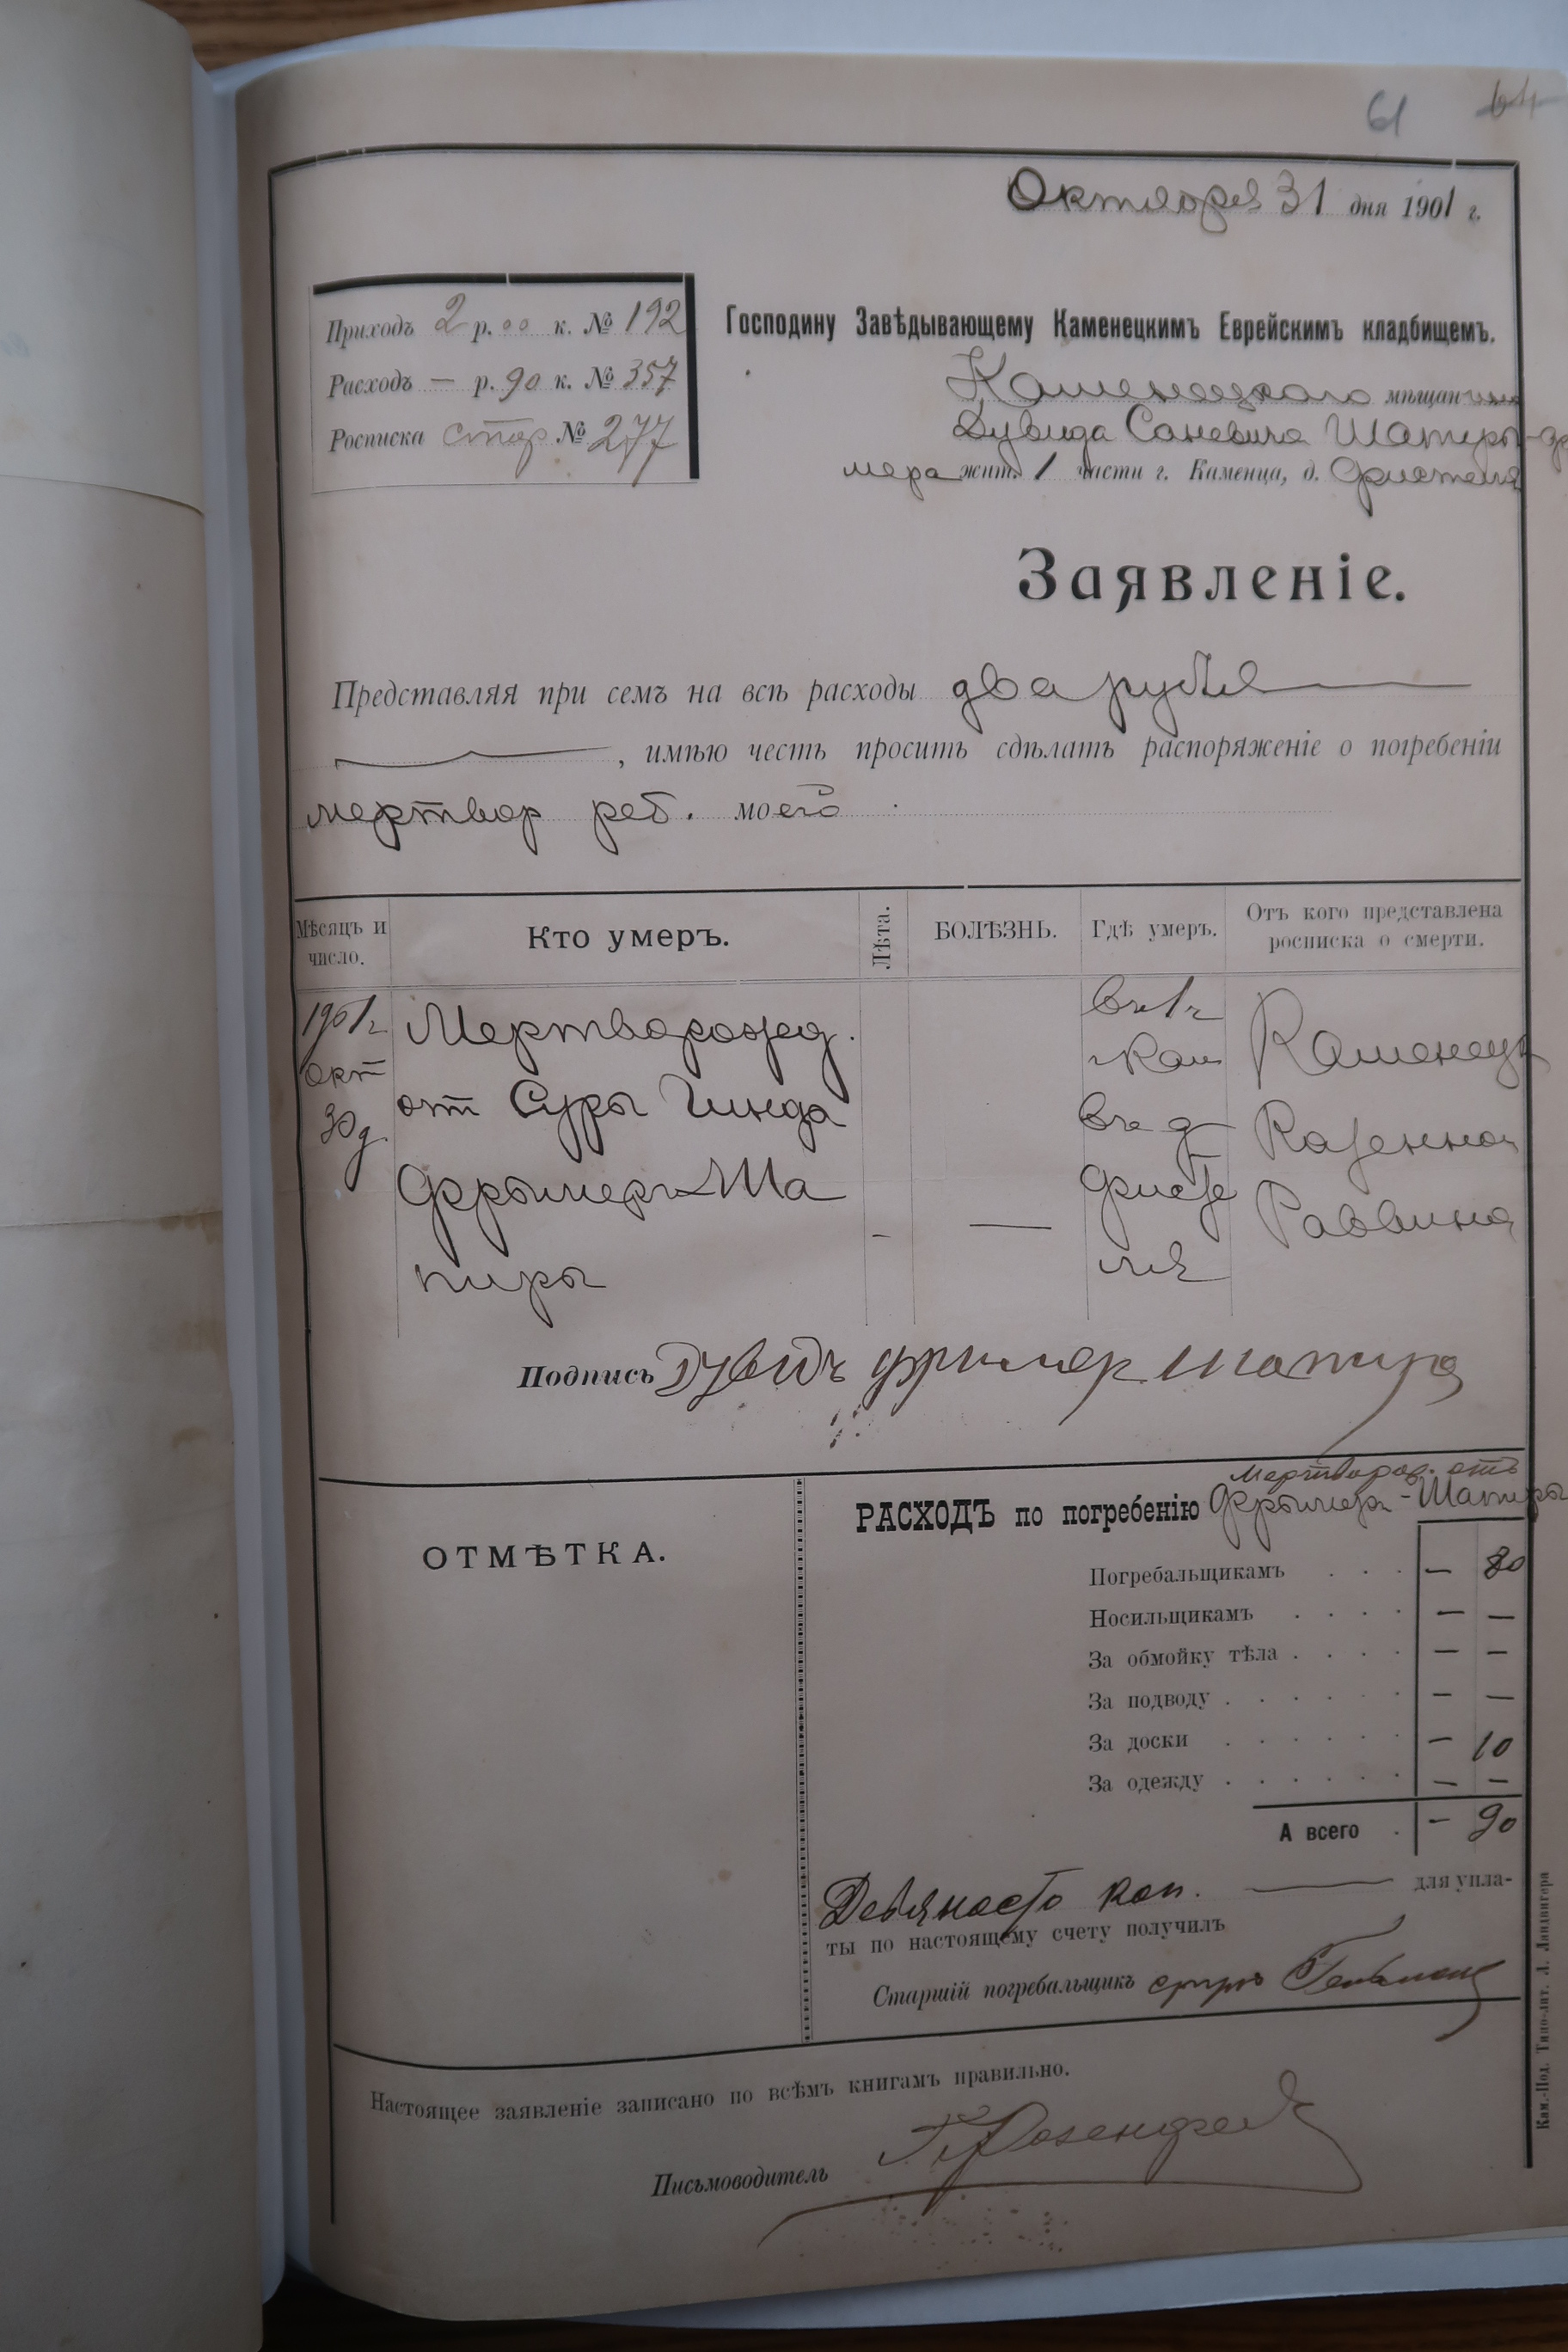 61 64
Октября 31 дня 1901 г.
Приходъ 2 р. 00 к. № 192
Расходъ — р. 90 к. № 357
Росписка стор № 277
Господину Завѣдывающему Каменецкимъ Еврейскимъ кладбищемъ.
Каменецкаго мѣщанина
Дувида Саневича Шапиры-Фри
мера жит. 1 части г. Каменца, д.
Заявленіе.
Представляя при семъ на всѣ расходы два рубля —
—, имѣю честь просить сдѣлать распоряженіе о погребеніи
мертвор реб. моего
Мѣсяцъ и число.
Кто умеръ.
Лѣта.
БОЛѢЗНЬ.
Гдѣ умеръ.
Отъ кого представлена росписка о смерти.
1901 г.
окт
30 д.
Мертворожд.
от Суры Гинда
Фрымеръ-Ша
пиры
-
—
въ 1 ч
г Кам
въ д
Каменецк
Казеннаго
Раввина
Подпись Дувидъ Фример Шапира
ОТМѢТКА.
РАСХОДЪ по погребенію мертворож. отъ Фрымеръ-Шапиры
Погребальщикамъ . . . — 80
Носильщикамъ . . . . — —
За обмойку тѣла . . . . — —
За подводу . . . . . . — —
За доски . . . . . . — 10
За одежду . . . . . . — —
А всего . — 90
Девяносто коп. — для упла-
ты по настоящему счету получилъ
Старшій погребальщикъ
Настоящее заявленіе записано по всѣмъ книгамъ правильно.
Письмоводитель Розенфельд
Кам.-Под. Типо-лит. Л. Ландвигера